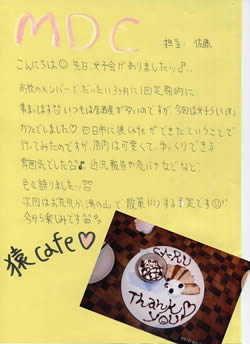 MDC
担当: 佐藤
こんにちは 先日、女子会がありましたッ♪..
高校のメンバーでだいたい3ヶ月に1回定期的に
集まります いつもは居酒屋が多いのですが 今回は女子らしく(笑)
カフェでしました 四日市に猿cafeができたということで
行ってみたのですが、店内は可愛くて、ゆっくりできる
雰囲気でした♪ 近況報告や息ぬけなどなど、
色々語りましたッ
次回はお花見か、湯の山で散策(いい)する予定です
今から楽しみです
猿cafe♡
Thank
you